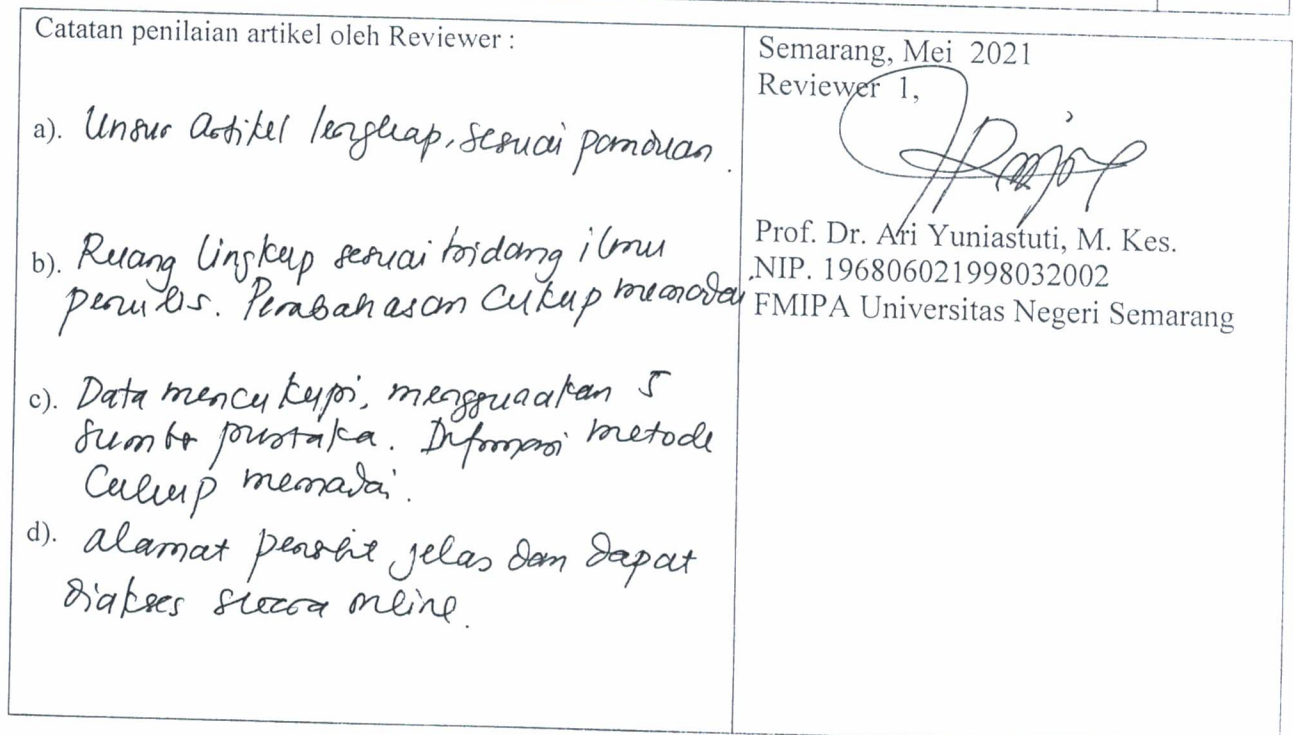 Catatan penilaian artikel oleh Reviewer :
a). Unsur artikel lengkap, sesuai panduan.
b). Ruang lingkup sesuai bidang ilmu
penulis. Pembahasan cukup memadai
c). Data mencukupi, menggunakan 5
sumber pustaka. Informasi metode
cukup memadai.
d). alamat penerbit jelas dan dapat
diakses secara online.
Semarang, Mei 2021
Reviewer 1,
Prof. Dr. Ari Yuniastuti, M. Kes.
NIP. 196806021998032002
FMIPA Universitas Negeri Semarang